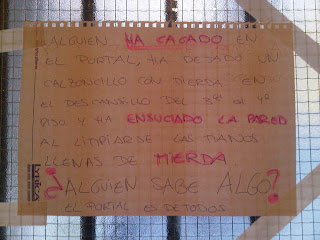 ALGUIEN HA CAGADO EN
EL PORTAL, HA DEJADO UN
CALZONCILLO CON MIERDA EN
EL DESCANSILLO DEL 3º AL 4º
PISO Y HA ENSUCIADO LA PARED
AL LIMPIARSE LAS MANOS
LLENAS DE MIERDA
¿ALGUIEN SABE ALGO?
EL PORTAL ES DE TODOS
LYRICA